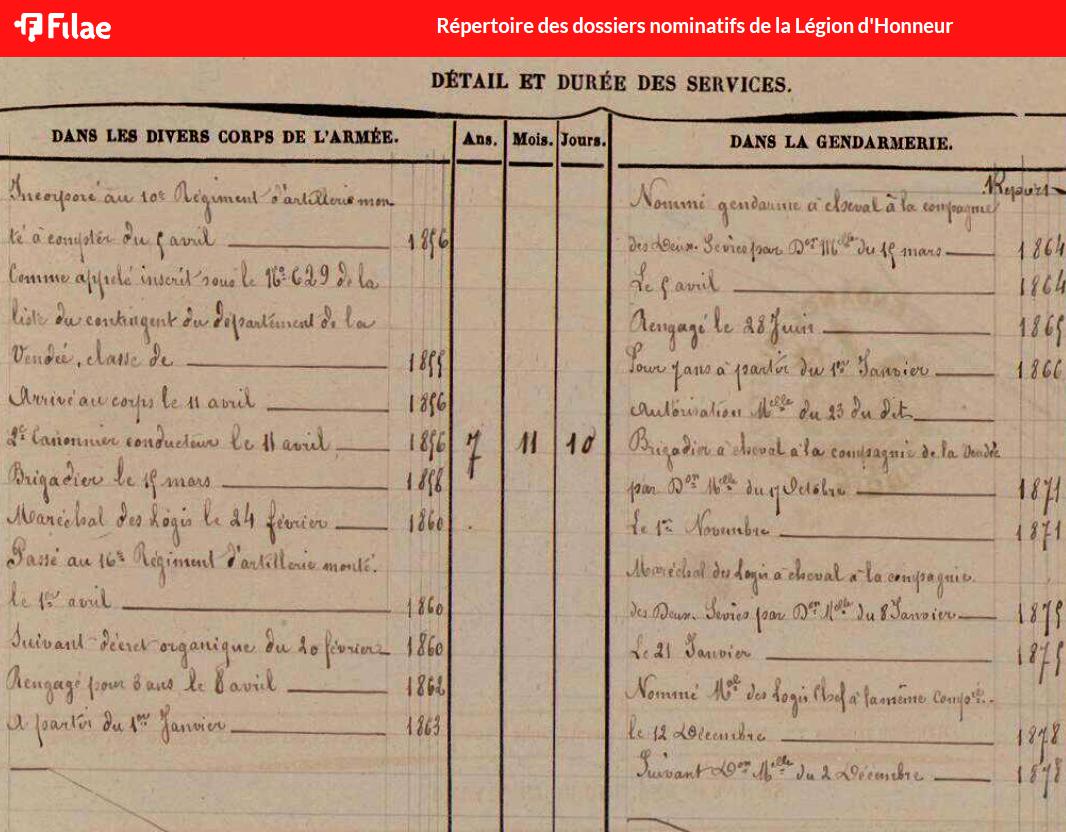 Filae
Répertoire des dossiers nominatifs de la Légion d'Honneur
DÉTAIL ET DURÉE DES SERVICES.
DANS LES DIVERS CORPS DE L'ARMÉE.
Ans.
Mois.
Jours.
DANS LA GENDARMERIE.
Incorporé au 10e Régiment d'artillerie mon
té à compter du 5 avril 1856
Comme appelé inscrit sous le No 629 de la
liste du contingent du département de la
Vendée, classe de 1855
Arrivé au corps le 11 avril 1856
2e Canonnier conducteur le 11 avril 1856
7 11 10
Brigadier le 15 mars 1858
Maréchal des Logis le 24 février 1860
Passé au 16e Régiment d'artillerie monté.
le 1er avril 1860
Suivant décret organique du 20 février 1860
Rengagé pour 3 ans le 8 avril 1862
A partir du 1er Janvier 1863
Report
Nommé gendarme à cheval à la compagnie
des Deux-Sèvres par Don Mlle du 15 mars 1864
Le 5 avril 1864
Rengagé le 28 Juin 1865
Pour 7 ans à partir du 1er Janvier 1866
Autorisation Mlle du 23 du dit
Brigadier à cheval à la compagnie de la Vendée
par Don Mlle du 17 Octobre 1871
Le 1er Novembre 1871
Maréchal des Logis à cheval à la compagnie
des Deux-Sèvres par Don Mlle du 8 Janvier 1875
Le 21 Janvier 1875
Nommé Mal des Logis Chef à la même Compie
le 12 Décembre 1878
Suivant Don Mlle du 2 Décembre 1878